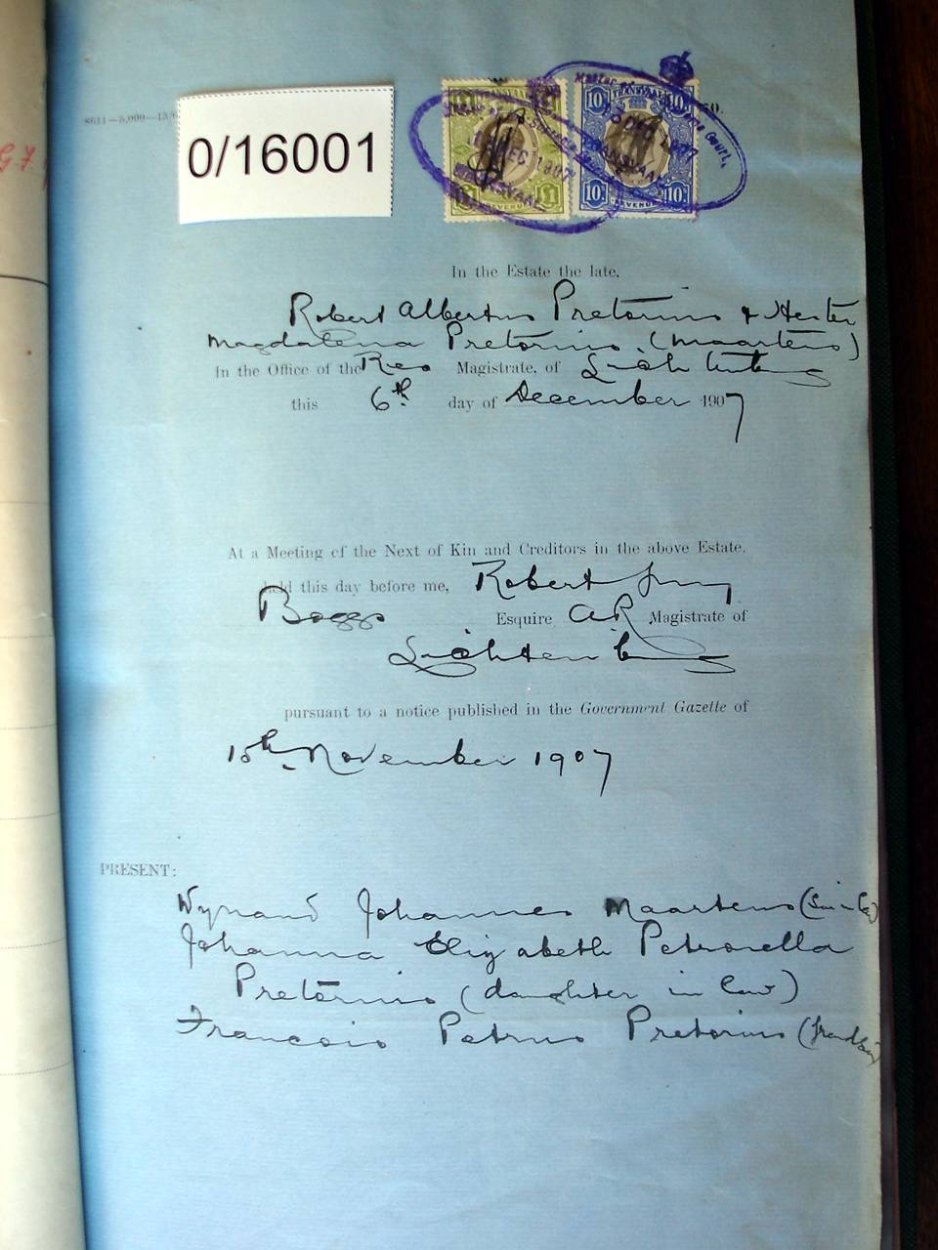 0/16001
TRANSVAAL
10/ 10/
DEC 1907
TRANSVAAL
£1
10/- 10/-
REVENUE
In the Estate the late,
Robert Albertus Pretorius & Hester
Magdalena Pretorius (Maartens)
In the Office of the Res Magistrate, of Lichtenburg
this 6th day of December 1907
At a Meeting of the Next of Kin and Creditors in the above Estate,
held this day before me, Robert
Boggs Esquire AR Magistrate of
Lichtenburg
pursuant to a notice published in the Government Gazette of
15th November 1907
PRESENT:
Wynand Johannes Maartens (Son in law)
Johanna Elizabeth Petronella
Pretorius (daughter in law)
Francois Petrus Pretorius (Grandson)